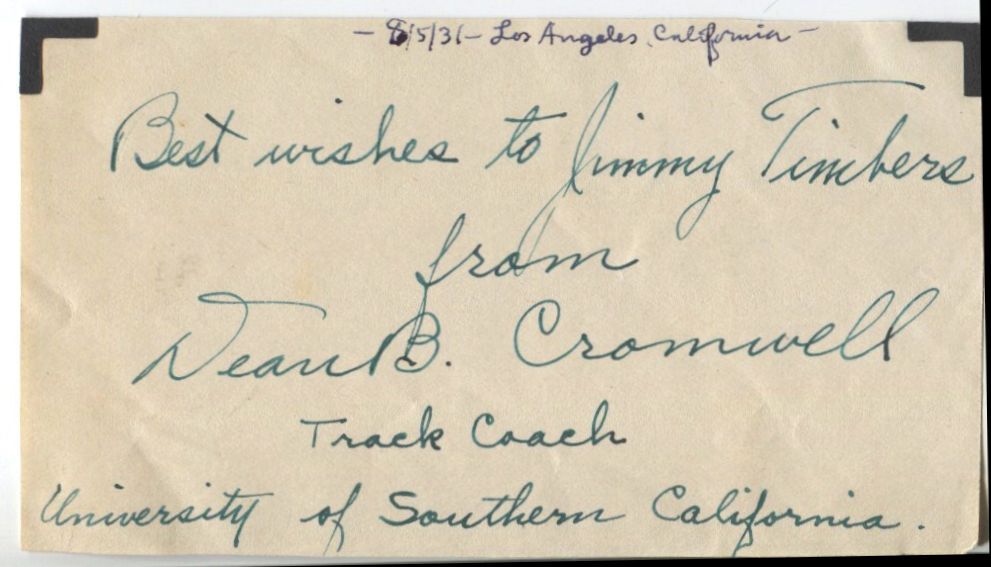 — 8/5/31 — Los Angeles, California —
Best wishes to Jimmy Timbers
from
Dean B. Cromwell
Track Coach
University of Southern California.